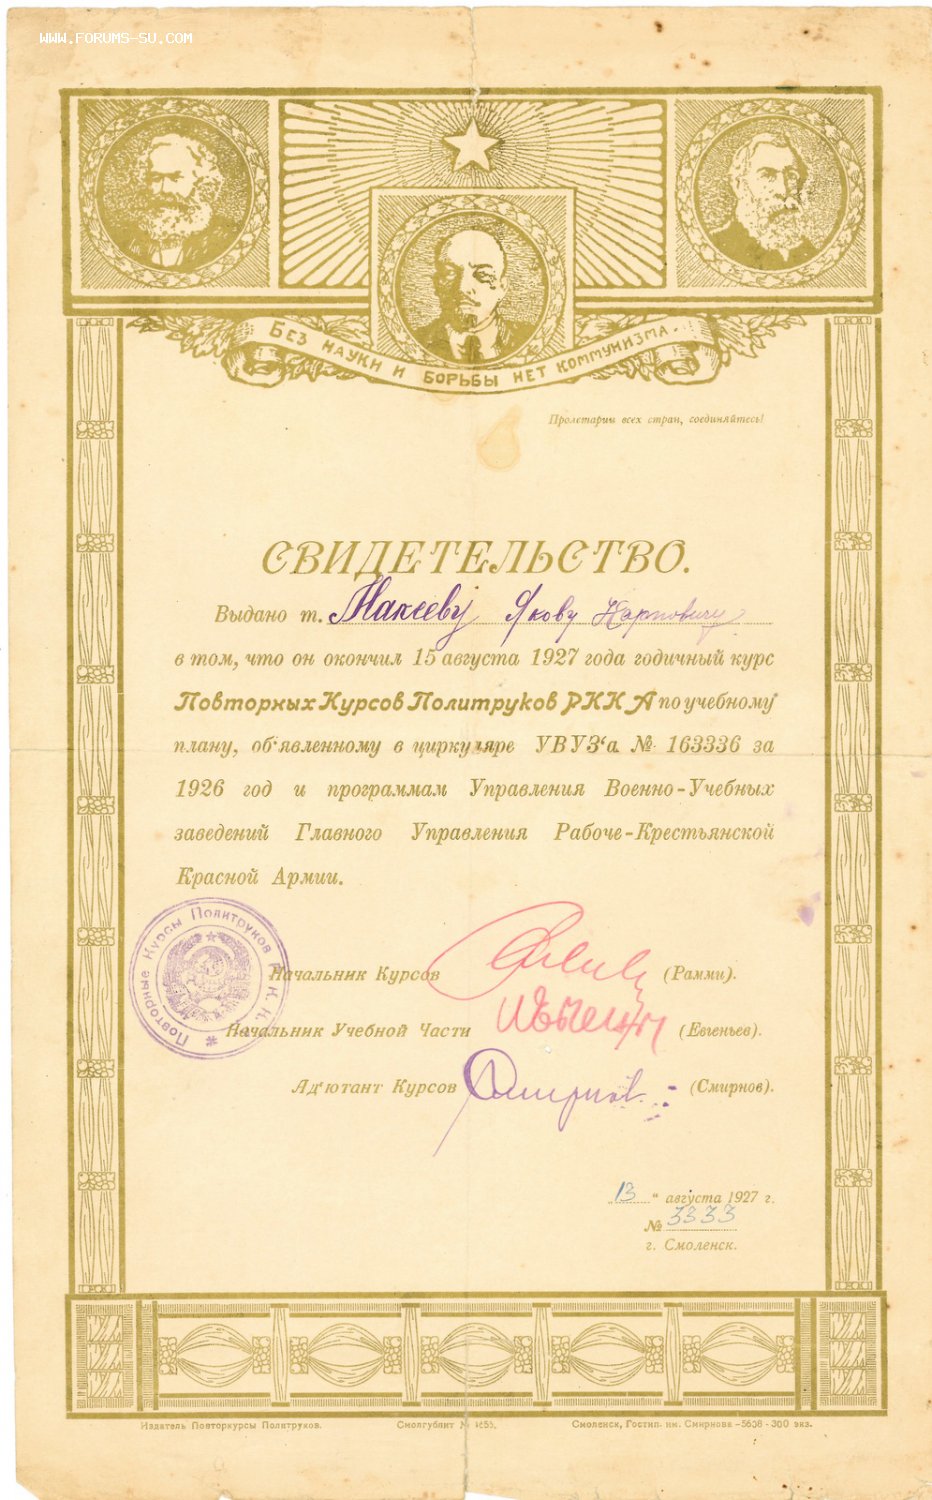 WWW.FORUMS-SU.COM
БЕЗ НАУКИ И БОРЬБЫ НЕТ КОММУНИЗМА.
Пролетарии всех стран, соединяйтесь!
СВИДЕТЕЛЬСТВО.
Выдано т. Макееву Якову Карповичу
в том, что он окончил 15 августа 1927 года годичный курс
Повторных Курсов Политруков РККА по учебному
плану, об‘явленному в циркуляре УВУЗ‘а № 163336 за
1926 год и программам Управления Военно-Учебных
заведений Главного Управления Рабоче-Крестьянской
Красной Армии.
Повторные Курсы Политруков Р.К.К.
Начальник Курсов (Рамми).
Начальник Учебной Части (Евгеньев).
Ад‘ютант Курсов Смирнов (Смирнов).
13 “ августа 1927 г.
№ 3333
г. Смоленск.
Издатель Повторкурсы Политруков. Смолгублит № Смоленск, Гостип. им. Смирнова-5638-300 экз.